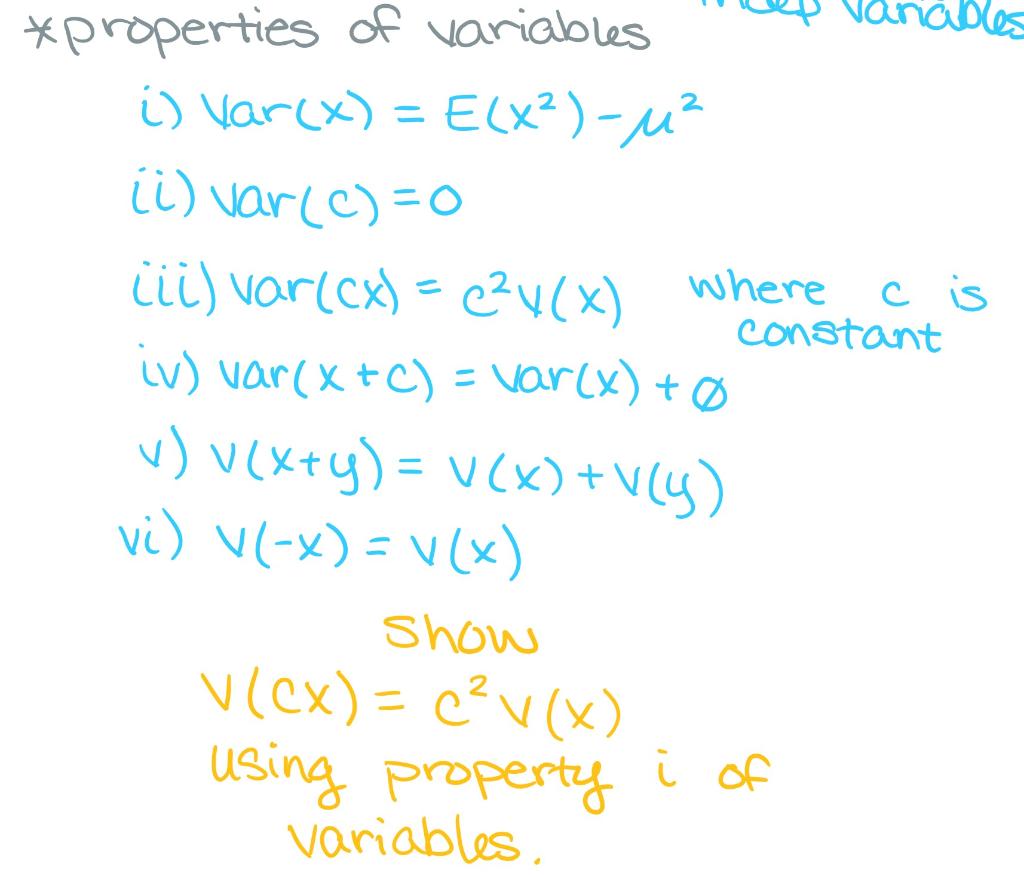 indep variables
*properties of variables
i) Var(x) = E(x²) - μ²
ii) Var(c) = 0
iii) Var(cx) = c²V(x) where c is
constant
iv) Var(x + c) = Var(x) + ∅
v) V(x+y) = V(x) + V(y)
vi) V(-x) = V(x)
Show
V(cx) = c²V(x)
using property i of
variables.